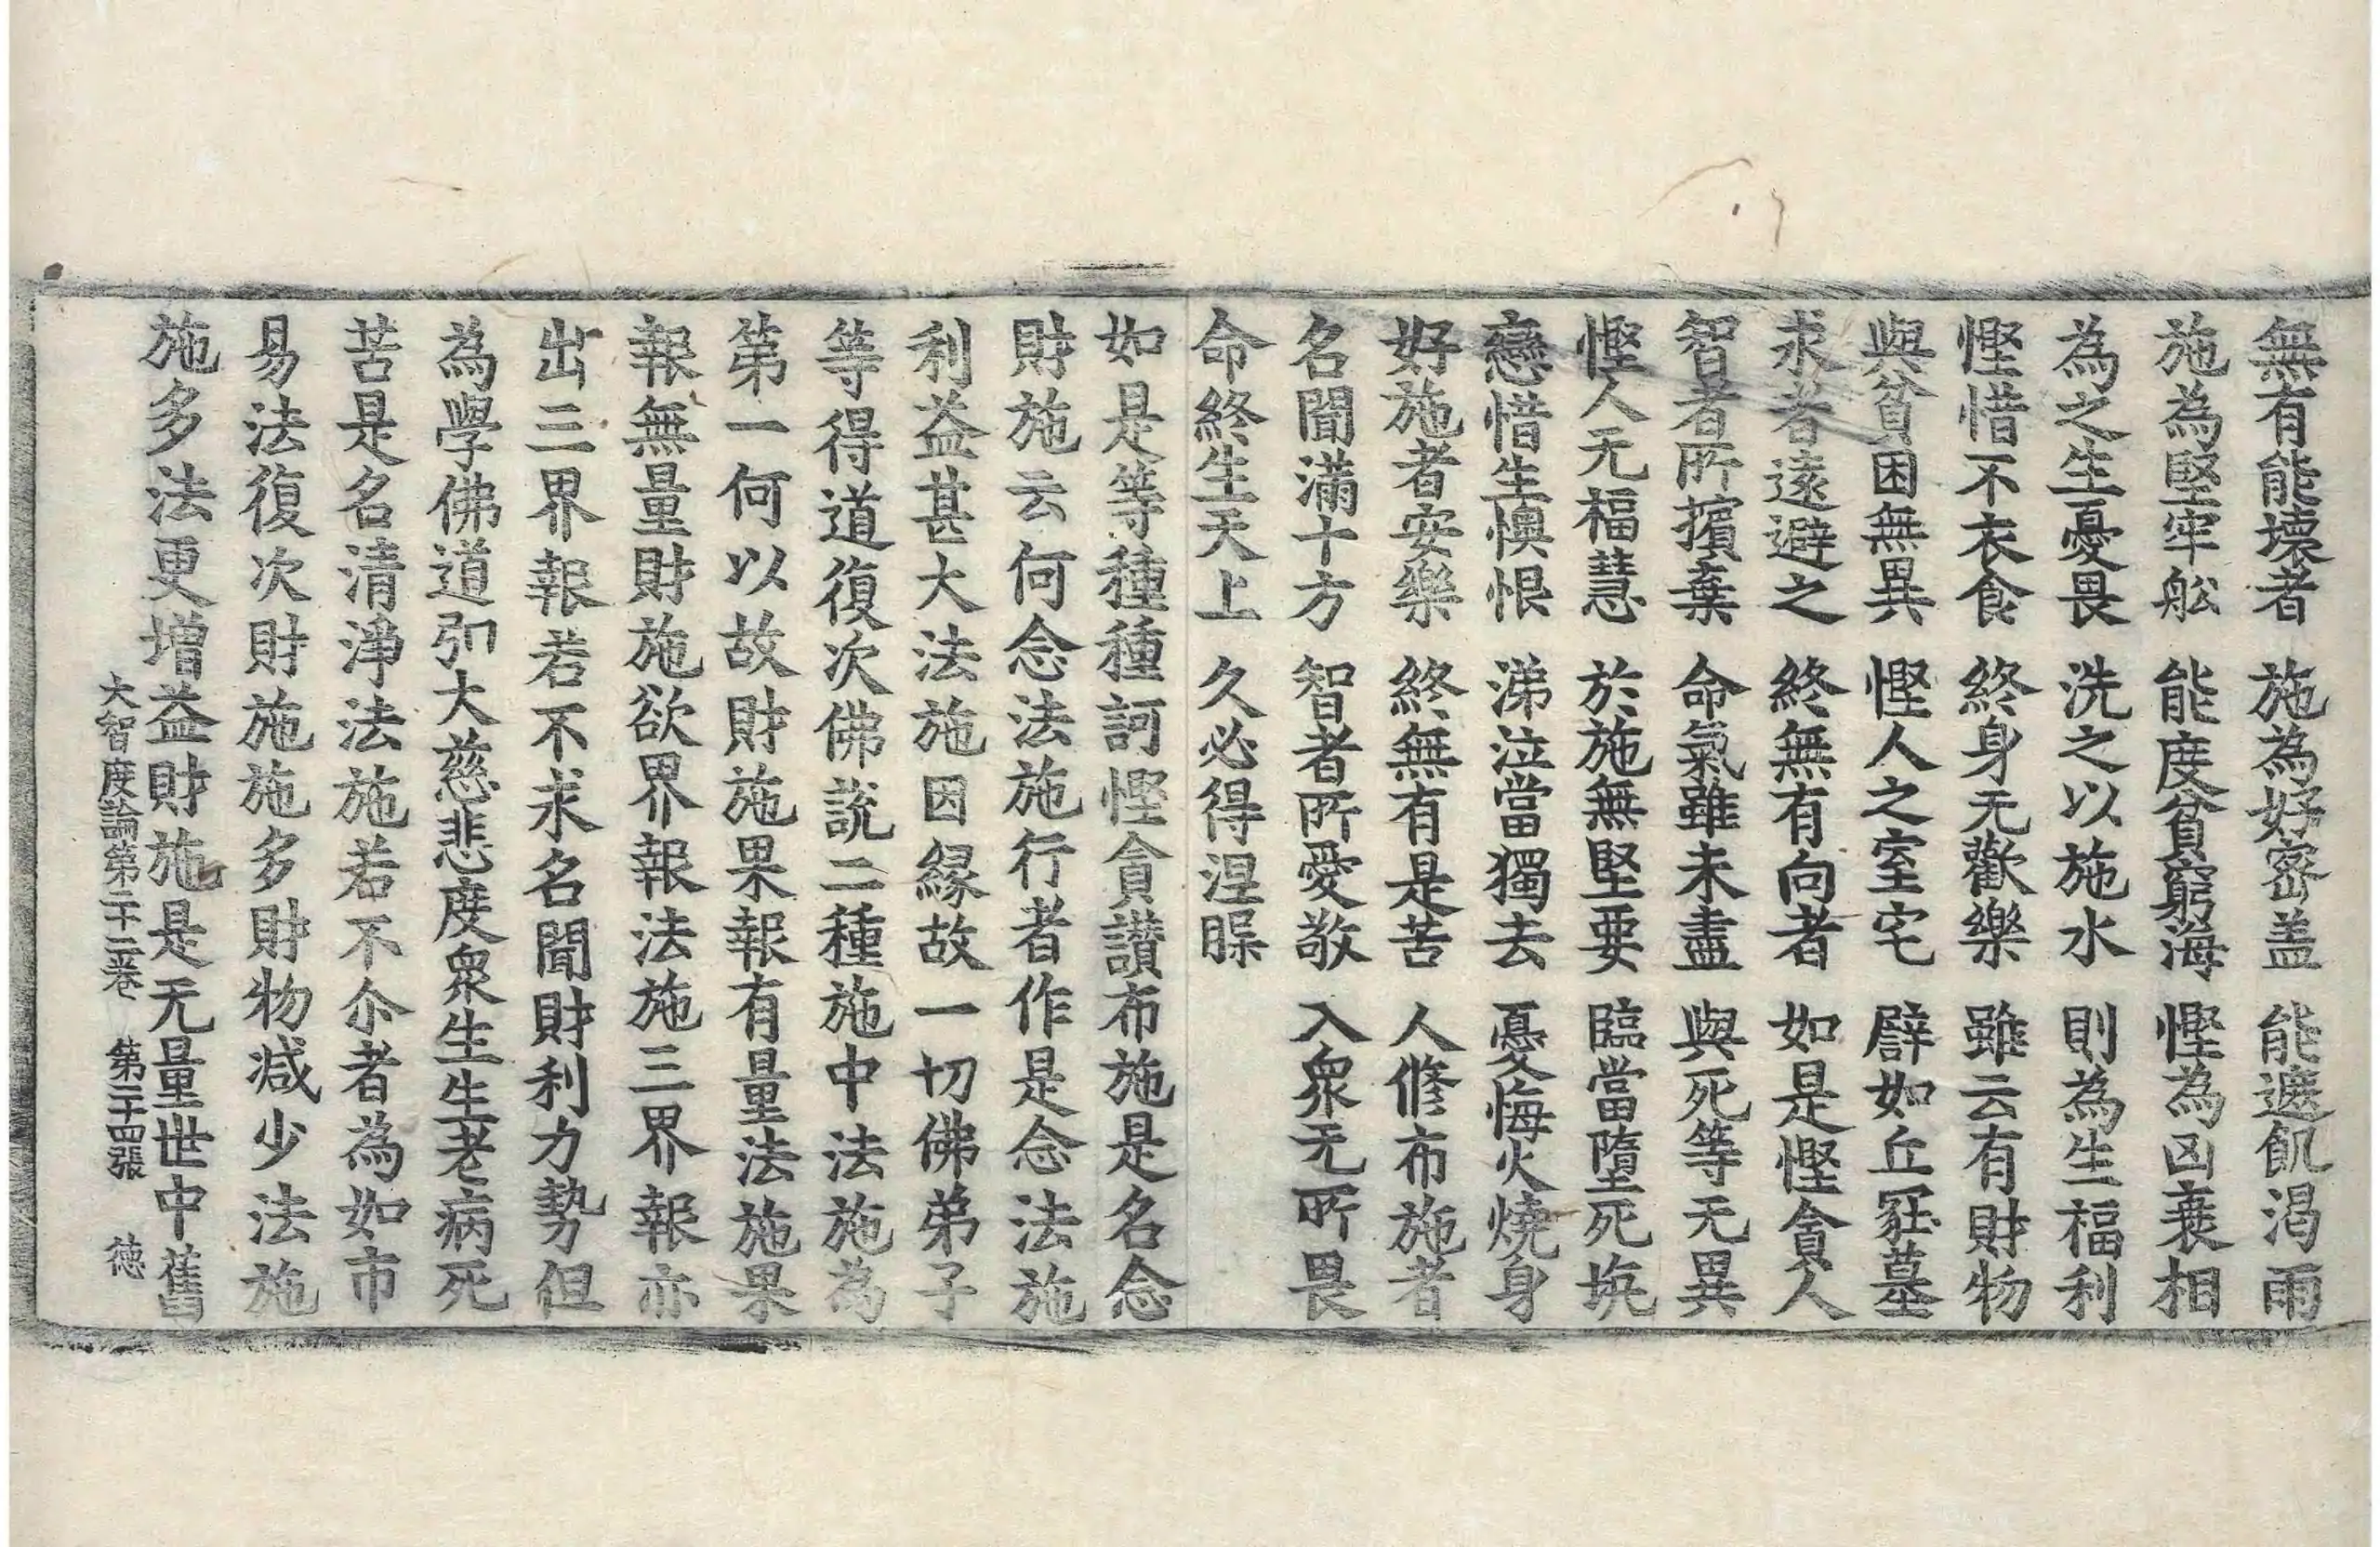 無有能壞者　施為好密盖　能遮飢渇雨
施為堅牢舩　能度貧窮海　慳為凶衰相
為之生憂畏　洗之以施水　則為生福利
慳惜不衣食　終身无歡樂　雖云有財物
與貧困無異　慳人之室宅　譬如丘冡墓
求者遠避之　終無有向者　如是慳貪人
智者所擯棄　命氣雖未盡　與死等无異
慳人无福慧　於施無堅要　臨當墮死坑
戀惜生懊恨　涕泣當獨去　憂悔火燒身
好施者安樂　終無有是苦　人修布施者
名聞滿十方　智者所愛敬　入衆无所畏
命終生天上　久必得涅槃
如是等種種訶慳貪讃布施是名念
財施云何念法施行者作是念法施
利益甚大法施因縁故一切佛弟子
等得道復次佛説二種施中法施為
第一何以故財施果報有量法施果
報無量財施欲界報法施三界報亦
出三界報若不求名聞財利力勢但
為學佛道弘大慈悲度衆生生老病死
苦是名清淨法施若不尒者為如市
易法復次財施施多財物减少法施
施多法更增益財施是无量世中舊
大智度論第二十二卷　第二十四張　德